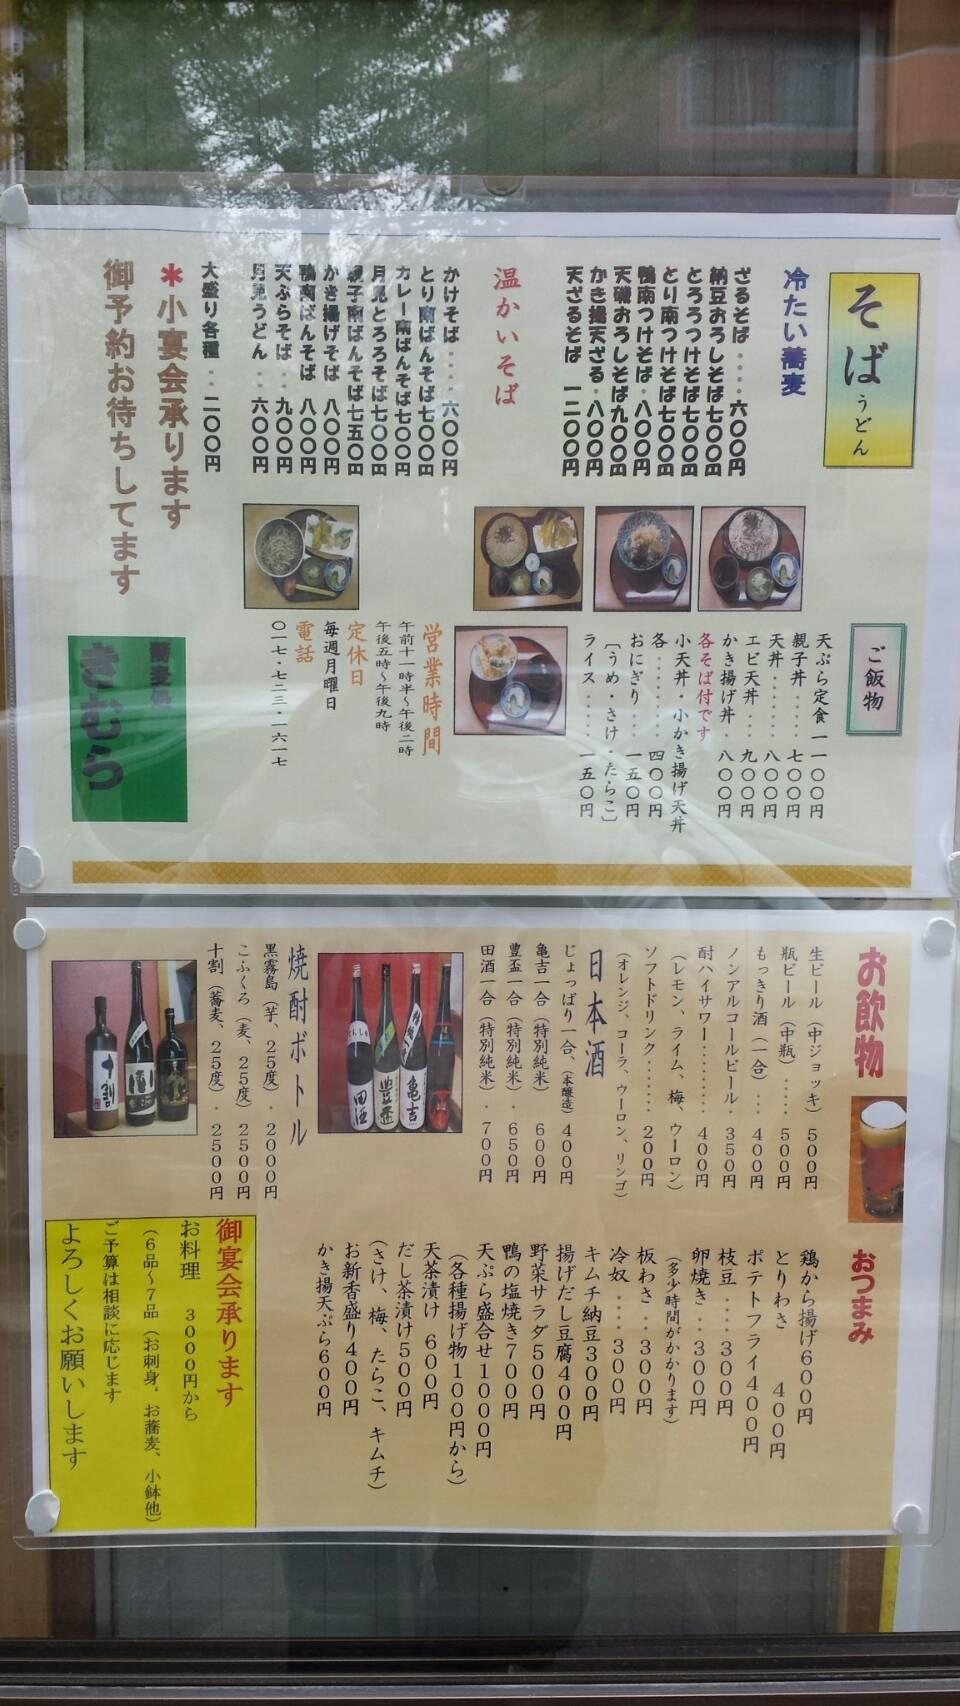 そばうどん
冷たい蕎麦
ざるそば・・・・六〇〇円
納豆おろしそば七〇〇円
とろろつけそば七〇〇円
とり南つけそば七〇〇円
鴨南つけそば・八〇〇円
天磯おろしそば九〇〇円
かき揚天ざる・八〇〇円
天ざるそば 一二〇〇円
温かいそば
かけそば・・・・六〇〇円
とり南ばんそば七〇〇円
カレー南ばんそば七〇〇円
月見とろろそば七〇〇円
親子南ばんそば七五〇円
かき揚げそば 八〇〇円
鴨南ばんそば 八〇〇円
天ぷらそば・・九〇〇円
月見うどん・・六〇〇円
大盛り各種・・二〇〇円
＊小宴会承ります
御予約お待ちしてます
ご飯物
天ぷら定食一一〇〇円
親子丼・・・・七〇〇円
天丼・・・・・八〇〇円
エビ天丼・・・九〇〇円
かき揚げ丼・・八〇〇円
各そば付です
小天丼・小かき揚げ天丼
各・・・・・・四〇〇円
おにぎり・・・一五〇円
〔うめ・さけ・たらこ〕
ライス・・・・一五〇円
営業時間
午前十一時半～午後二時
午後五時～午後九時
定休日
毎週月曜日
電話
〇一七・七二三・一六一七
蕎麦処
きむら
お飲物
生ビール（中ジョッキ）５００円
瓶ビール（中瓶）・・・・・５００円
もっきり酒（一合）・・・４００円
ノンアルコールビール・３５０円
酎ハイサワー・・・・・・・４００円
（レモン、ライム、梅、ウーロン）
ソフトドリンク・・・・・・２００円
（オレンジ、コーラ、ウーロン、リンゴ）
日本酒
じょっぱり一合、（本醸造）４００円
亀吉一合（特別純米）・６００円
豊盃一合（特別純米）・６５０円
田酒一合（特別純米）・７００円
焼酎ボトル
黒霧島（芋、２５度）・２０００円
こふくろ（麦、２５度）２５００円
十割（蕎麦、２５度）・２５００円
おつまみ
鶏から揚げ６００円
とりわさ ４００円
ポテトフライ４００円
枝豆・・・・３００円
卵焼き・・・３００円
（多少時間がかかります）
板わさ・・・３００円
冷奴・・・・３００円
キムチ納豆３００円
揚げだし豆腐４００円
野菜サラダ５００円
鴨の塩焼き７００円
天ぷら盛合せ１０００円
（各種揚げ物１００円から）
天茶漬け ６００円
だし茶漬け５００円
（さけ、梅、たらこ、キムチ）
お新香盛り４００円
かき揚天ぷら６００円
御宴会承ります
お料理 ３０００円から
（６品～７品（お刺身，お蕎麦、小鉢他）
ご予算は相談に応じます
よろしくお願いします
亀吉
豊盃
田酒
十割